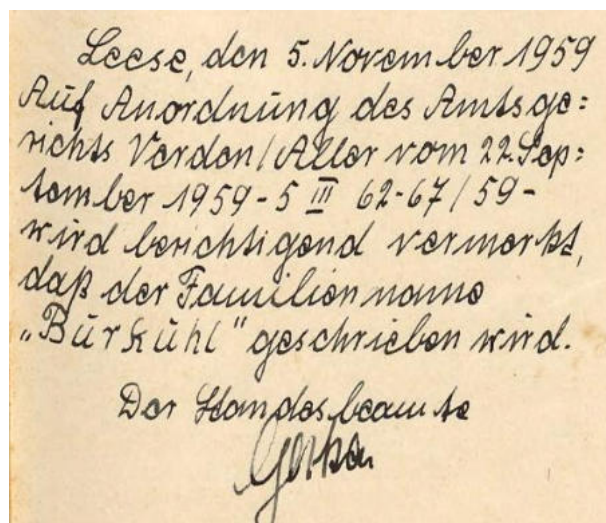 Leese, den 5. November 1959
Auf Anordnung des Amtsge=
richts Verden/Aller vom 22. Sep=
tember 1959 - 5 III 62-67/59 -
wird berichtigend vermerkt,
daß der Familienname
„Burkuhl" geschrieben wird.
Der Standesbeamte